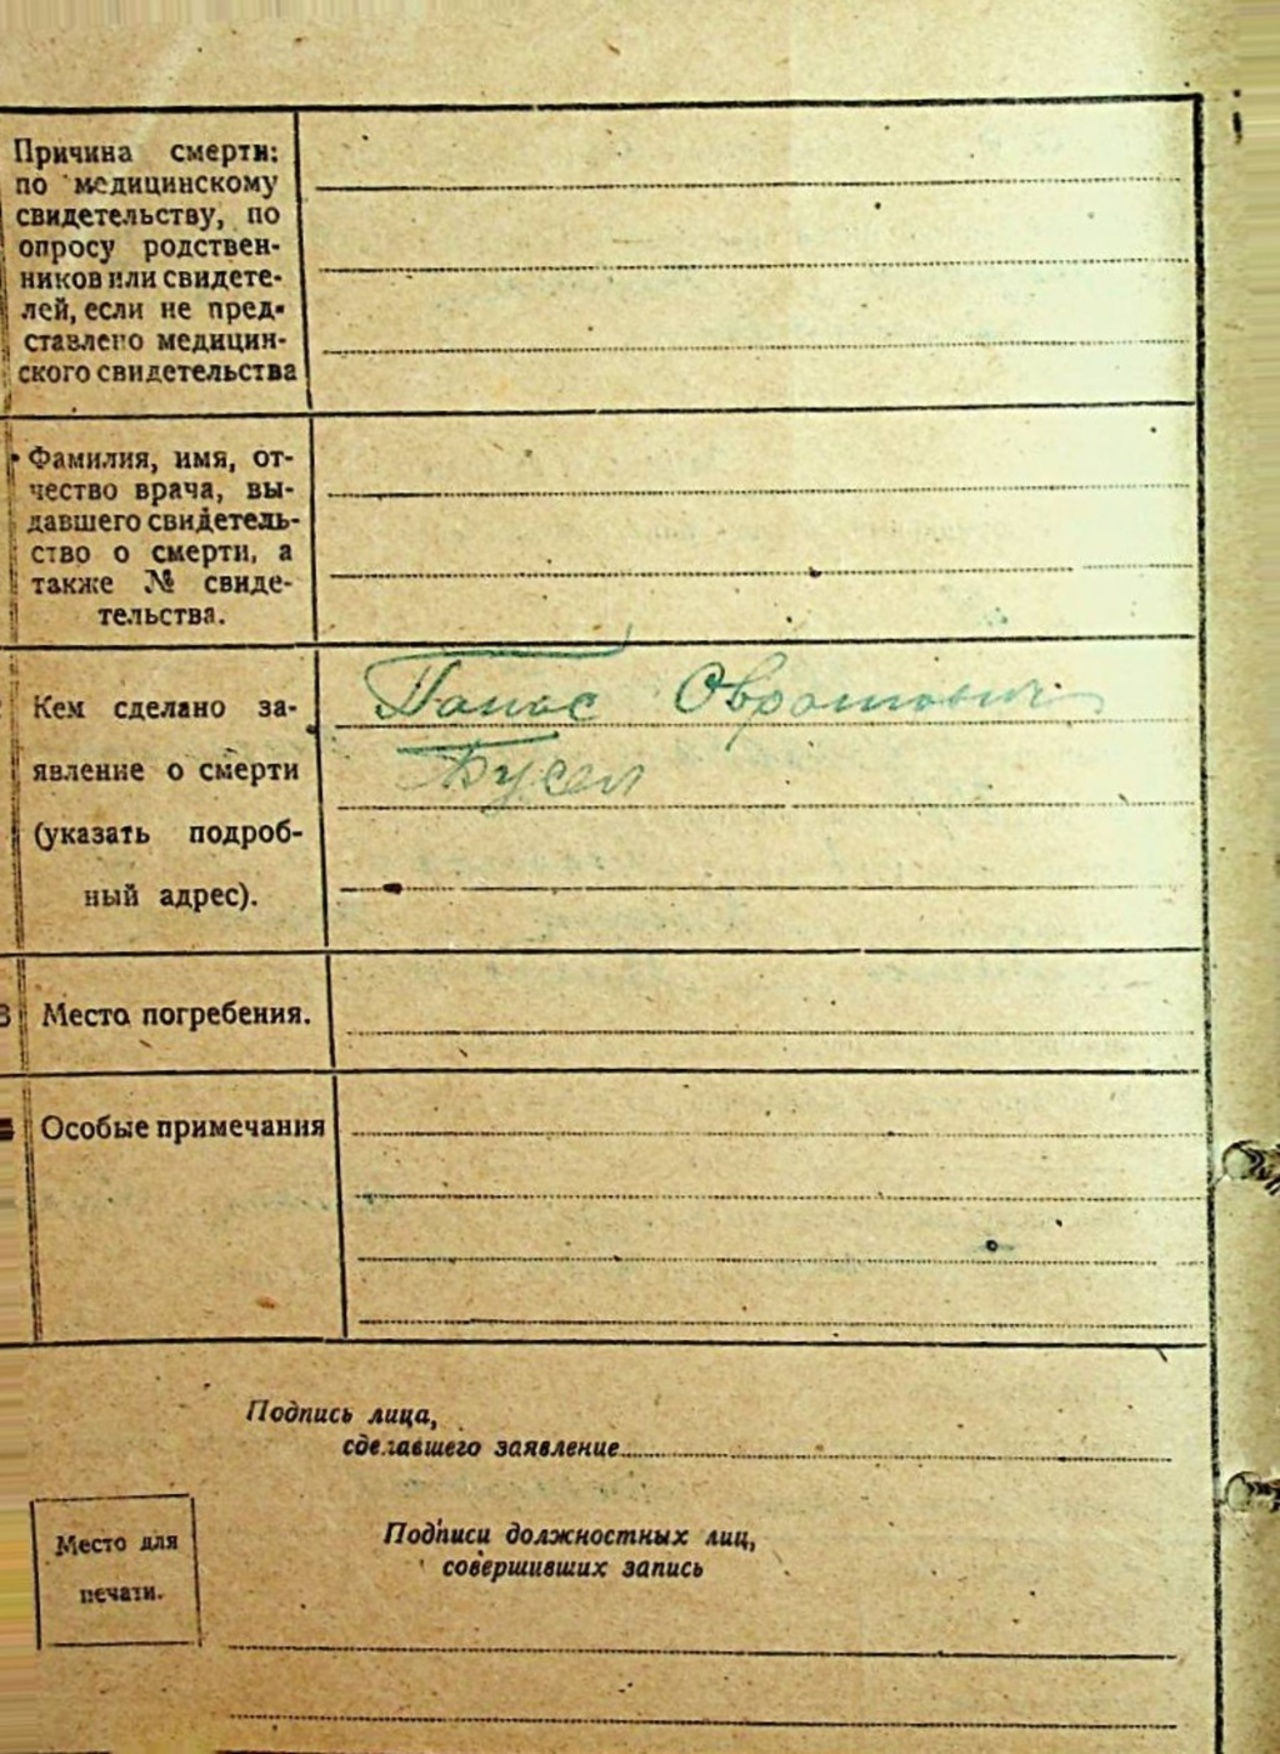 Причина смерти:
по медицинскому
свидетельству, по
опросу родствен-
ников или свидете-
лей, если не пред-
ставлено медицин-
ского свидетельства
Фамилия, имя, от-
чество врача, вы-
давшего свидетель-
ство о смерти, а
также № свиде-
тельства.
Кем сделано за-
явление о смерти
(указать подроб-
ный адрес).
Панас
Бусел
Место погребения.
Особые примечания
Подпись лица,
сделавшего заявление
Место для
печати.
Подписи должностных лиц,
совершивших запись